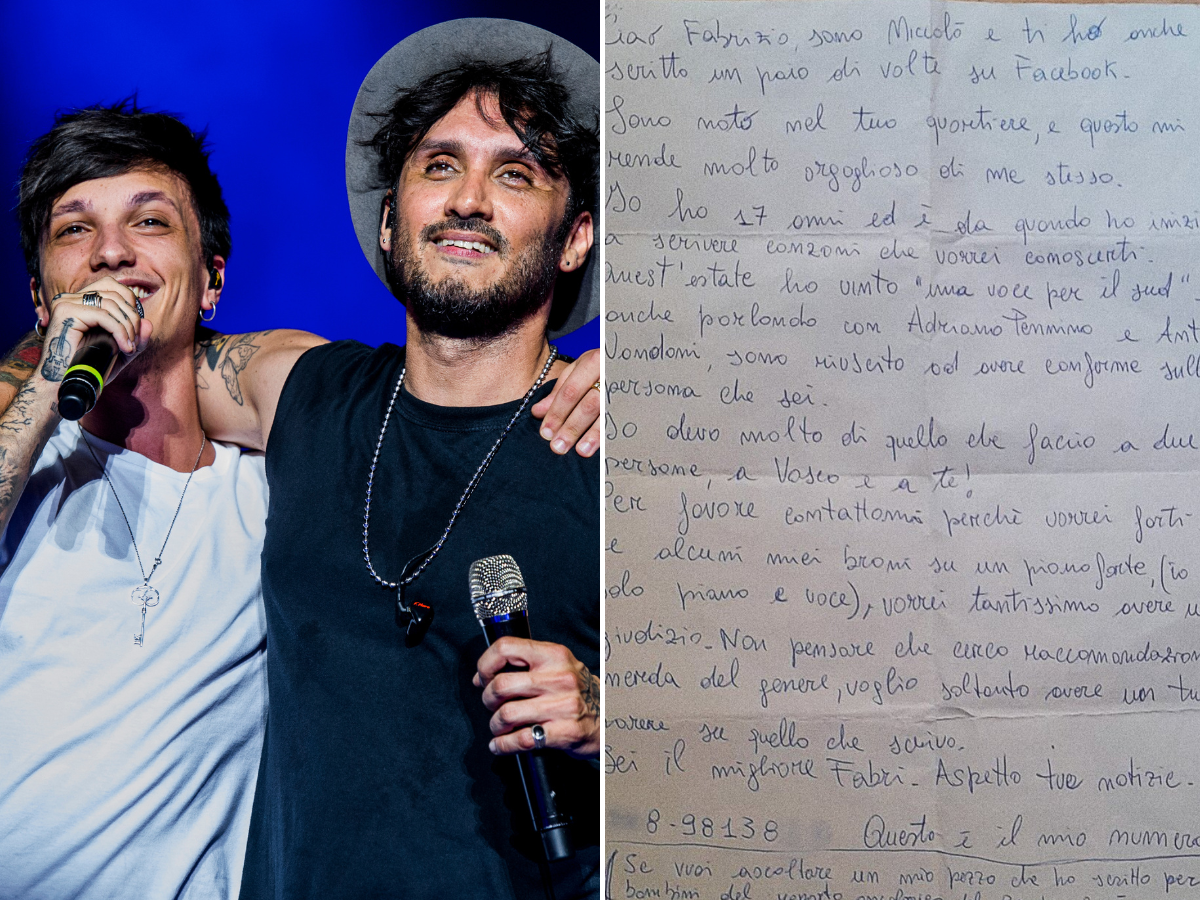 iao Fabrizio, sono Niccolò e ti ho anche
scritto un paio di volte su Facebook.
Sono nato nel tuo quartiere, e questo mi
rende molto orgoglioso di me stesso.
Io ho 17 anni ed è da quando ho iniz
a scrivere canzoni che vorrei conoscerti.
Quest'estate ho vinto "una voce per il sud".
anche parlando con Adriano Pennino e Ant
Vandoni, sono riuscito ad avere conferme sull
persona che sei.
Io devo molto di quello che faccio a due
persone, a Vasco e a te!
Per favore contattami perchè vorrei farti
e alcuni miei brani su un pianoforte, (io
olo piano e voce), vorrei tantissimo avere u
giudizio. Non pensare che cerco raccomandazion
merda del genere, voglio soltanto avere un tu
parere su quello che scrivo.
Sei il migliore Fabri. Aspetto tue notizie.
8-98138 Questo è il mio numero
Se vuoi ascoltare un mio pezzo che ho scritto per
bambini del reparto